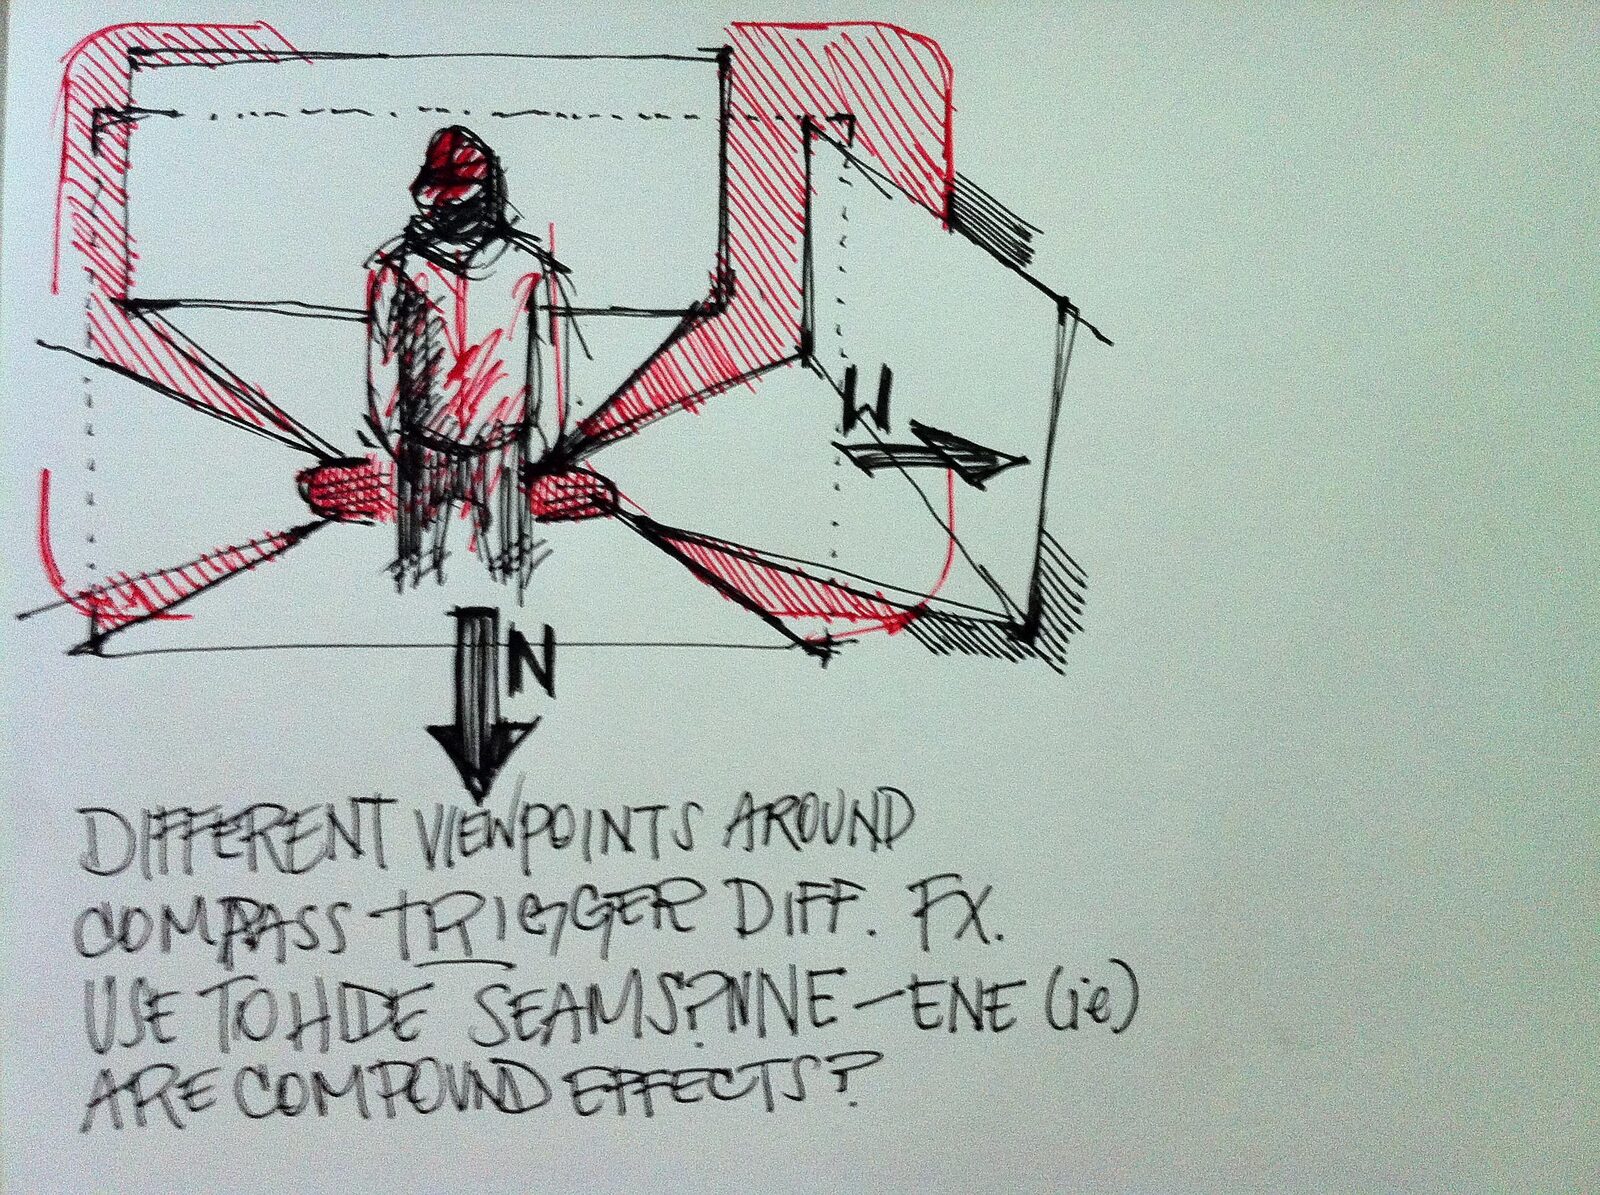 W
N
DIFFERENT VIEWPOINTS AROUND
COMPASS TRIGGER DIFF. FX.
USE TO HIDE SEAMS? NNE-ENE (ie)
ARE COMPOUND EFFECTS?